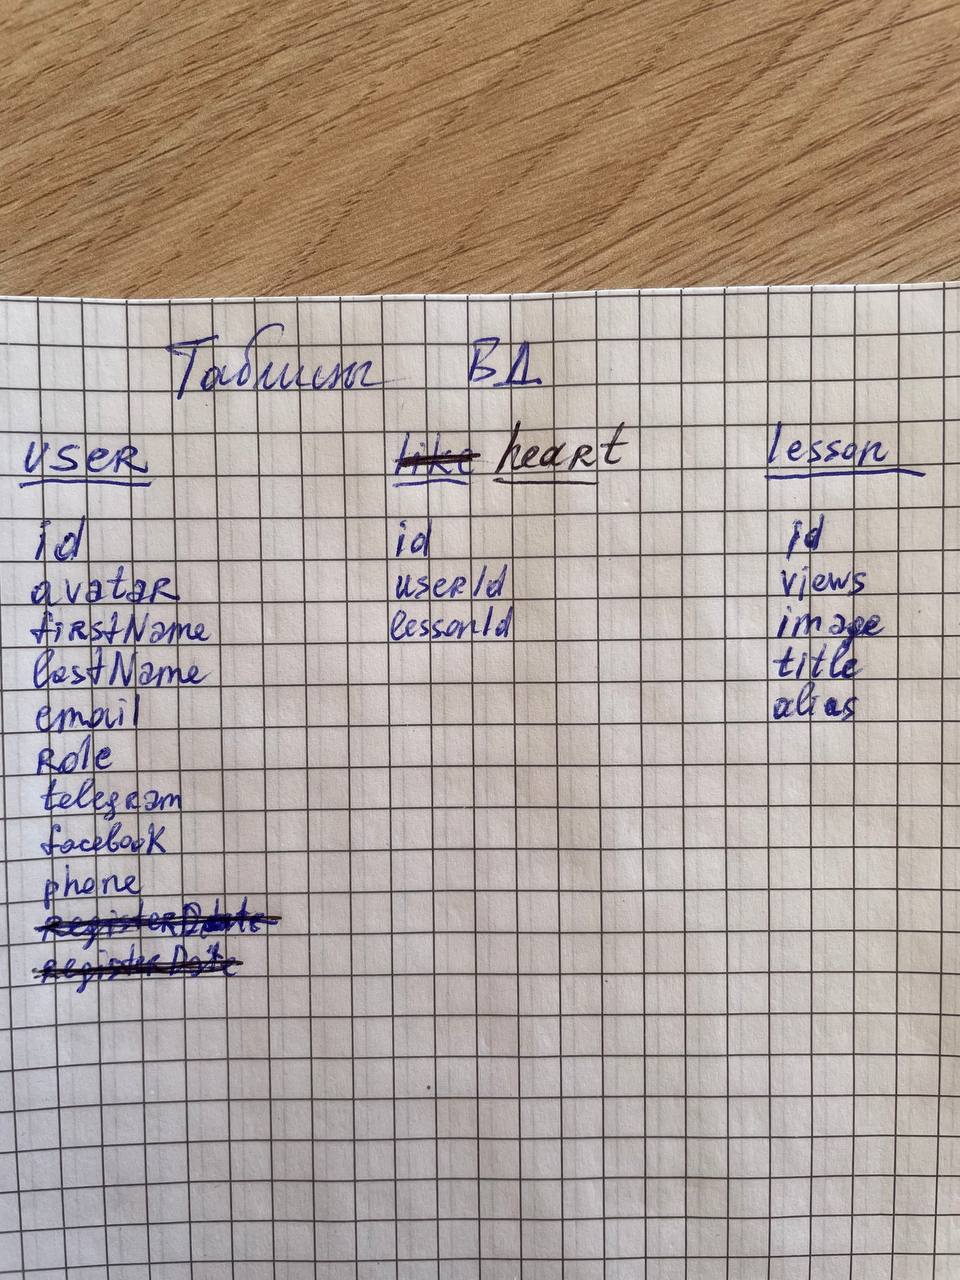 Таблицы БД
user
id
avatar
firstName
lastName
email
Role
telegram
facebook
phone
registerDate
registerDate
like heart
id
userId
lessonId
lesson
id
views
image
title
alias